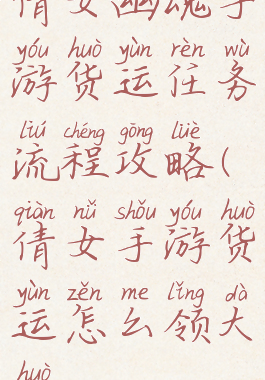 倩女幽魂手
yóu huò yùn rèn wù
游货运任务
liú chéng gōng lüè
流程攻略(
qiàn nǚ shǒu yóu huò
倩女手游货
yùn zěn me lǐng dà
运怎么领大
huò